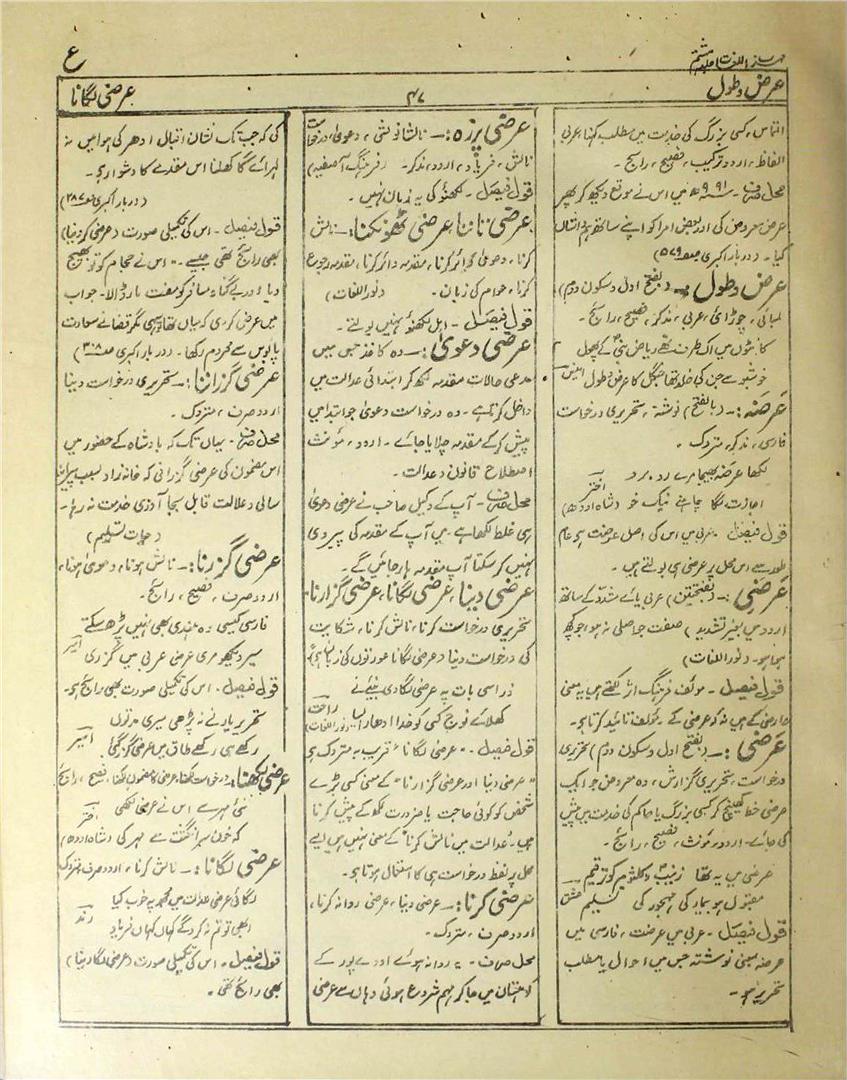 مہذب اللغات جلد ہشتم
ع
عرض و طول
۴۷
عرضی لگانا
التماس، کسی بزرگ کی خدمت میں مطلب کہنا، عربی
الفاظ، اردو ترکیب، فصیح، رائج۔
محل صرف۔ سنہ ۹۹۱ھ میں اس نے موقع دیکھ کر پھر
عرض معروض کی اور بعض امرا کو اپنے ساتھ ہم داستان
کیا۔ (دربار اکبری صفحہ ۵۷۹)
عرض و طول:۔ (بفتح اول و سکون دوم)
لمبائی، چوڑائی، عربی، مذکر، فصیح، رائج۔
کانٹوں میں اک طرف تھے ریاض نبی کے پھول
خوشبو سے جن کی خلد تھا جنگل کا عرض و طول انیس
عَرضہ:۔ (بالفتح) نوشتہ، تحریری درخواست
فارسی، مذکر، متروک۔
لکھا عرضہ بھیجا مرے رو برو
اجازت لگا چاہنے نیک خو اختر (شاہ اودھ)
قول فیصل۔ عربی میں اس کی اصل عرضت ہے عام
طور سے اس محل پر عرضی ہی بولتے ہیں۔
عَرَضِی:۔ (بفتحتین) عربی یائے مشدد کے ساتھ
اردو میں بغیر تشدید) صفت جو اصلی نہ ہو، جو کچھ
ہوا ہو۔ (نور اللغات)
قول فیصل۔ مولف فرہنگ اثر لکھتے ہیں یہ معنی
عارضی کے ہیں نہ کہ عرضی کے۔ مولف تائید کرتا ہے۔
عَرضی:۔ (بفتح اول و سکون دوم) تحریری
درخواست، تحریری گزارش، وہ معروض جو ایک
عرضی خط کھینچ کر کسی بزرگ یا حاکم کی خدمت میں پیش
کی جائے۔ اردو، مؤنث، فصیح، رائج۔
عرضی میں یہ تھا زینب و کلثوم کو ترقیم
مقبول ہو بیمار کی مہجور کی تسلیم عشق
قول فیصل۔ عربی میں عرضت، فارسی میں
عرضہ بمعنی نوشتہ جس میں احوال یا مطلب
تحریر ہو۔
عرضی پرزہ:۔ نالشا نویشی، دعویٰ، درخواست
نالش، فریاد، اردو، مذکر۔ (فرہنگ آصفیہ)
قول فیصل۔ لکھنؤ کی یہ زبان نہیں۔
عرضی تاننا، عرضی ٹھونکنا:۔ نالش
کرنا، دعویٰ دائر کرنا، مقدمہ دائر کرنا، مقدمہ رجوع
کرنا، عوام کی زبان۔ (نور اللغات)
قول فیصل۔ اہل لکھنؤ نہیں بولتے۔
عرضی دعویٰ:۔ وہ کاغذ جس میں
مدعی حالات مقدمہ لکھ کر ابتدائی عدالت میں
داخل کرتا ہے۔ وہ درخواست دعویٰ جو ابتدا میں
پیش کر کے مقدمہ چلایا جائے۔ اردو، مؤنث
اصطلاح قانون و عدالت۔
محل صرف۔ آپ کے وکیل صاحب نے عرضی دعویٰ
ہی غلط لکھا ہے۔ میں آپ کے مقدمہ کی پیروی
نہیں کر سکتا آپ مقدمہ ہار جائیں گے۔
عرضی دینا، عرضی لگانا، عرضی گزارنا:۔
تحریری درخواست کرنا، نالش کرنا، شکایت
کی درخواست دینا (عرضی لگانا عورتوں کی زبان ہے)
ذرا سی بات پہ عرضی لگا دی بنیئے نے
کھلائے نوج کسی کو خدا ادھار ایسا راحت (نور اللغات)
قول فیصل۔ "عرضی لگانا" قریب بہ متروک ہے
"عرضی دینا اور عرضی گزارنا" کے معنی کسی بڑے
شخص کو کوئی حاجت یا ضرورت لکھ کے پیش کرنا
ہیں۔ عدالت میں نالش کرنا کے معنی نہیں ہیں ایسے
محل پر لفظ درخواست ہی کا استعمال ہوتا ہے۔
عرضی کرنا:۔ عرضی دینا، عرضی روانہ کرنا،
اردو صرف، متروک۔
محل صرف۔ یہ روانہ ہوئے اودے پور کے
کوہستان میں جا کر مہم شروع ہوئی وہاں سے عرضی
کی کہ جب تک نشان اقبال ادھر کی ہوا میں نہ
لہرائے گا کھلنا اس مقدمے کا دشوار ہے۔
(دربار اکبری صفحہ ۲۸۷)
قول فیصل۔ اس کی تکمیلی صورت (عرضی کر دینا)
بھی رائج تھی جیسے۔ "اس نے حجام کو تو بھیج
دیا اور بے گناہ مسافر کو مفت مار ڈالا۔ جواب
میں عرضی کر دی کہ یہاں تھا تو سہی مگر قضا نے سعادت
پابوس سے محروم رکھا۔ (دربار اکبری صفحہ ۳۰۸)
عرضی گزراننا:۔ تحریری درخواست دینا
اردو صرف، متروک۔
محل صرف۔ یہاں تک کہ بادشاہ کے حضور میں
اس مضمون کی عرضی گزرانی کہ خانہ زاد بسبب پیرانہ
سالی و علالت قابل بجا آوری خدمت نہ رہا۔
(حیات تسلیم)
عرضی گزرنا:۔ نالش ہونا، دعویٰ ہونا،
اردو صرف، فصیح، رائج۔
فارسی کیسی وہ ہندی بھی نہیں پڑھ سکتے
سیر دیکھو مری عرضی عربی میں گزری اسیر
قول فیصل۔ اس کی تکمیلی صورت بھی رائج ہے۔
تحریر یار نے نہ پڑھی میری مدتوں
رکھے ہی رکھے طاق میں عرضی گزر گئی اسیر
عرضی لکھنا:۔ درخواست لکھنا، عرضی کا مضمون لکھنا، فصیح، رائج
نئی مہرے اس نے عرضی لکھی
کہ خون سر انگشت سے مہر کی اختر (شاہ اودھ)
عرضی لگانا:۔ نالش کرنا، اردو صرف، متروک
لگائی عرضی عدالت میں مجھ پہ خوب کیا
ابھی تو تم نہ کرو گے کہاں کہاں فریاد رند
قول فیصل۔ اس کی تکمیلی صورت (عرضی لگا دینا)
بھی رائج تھی۔